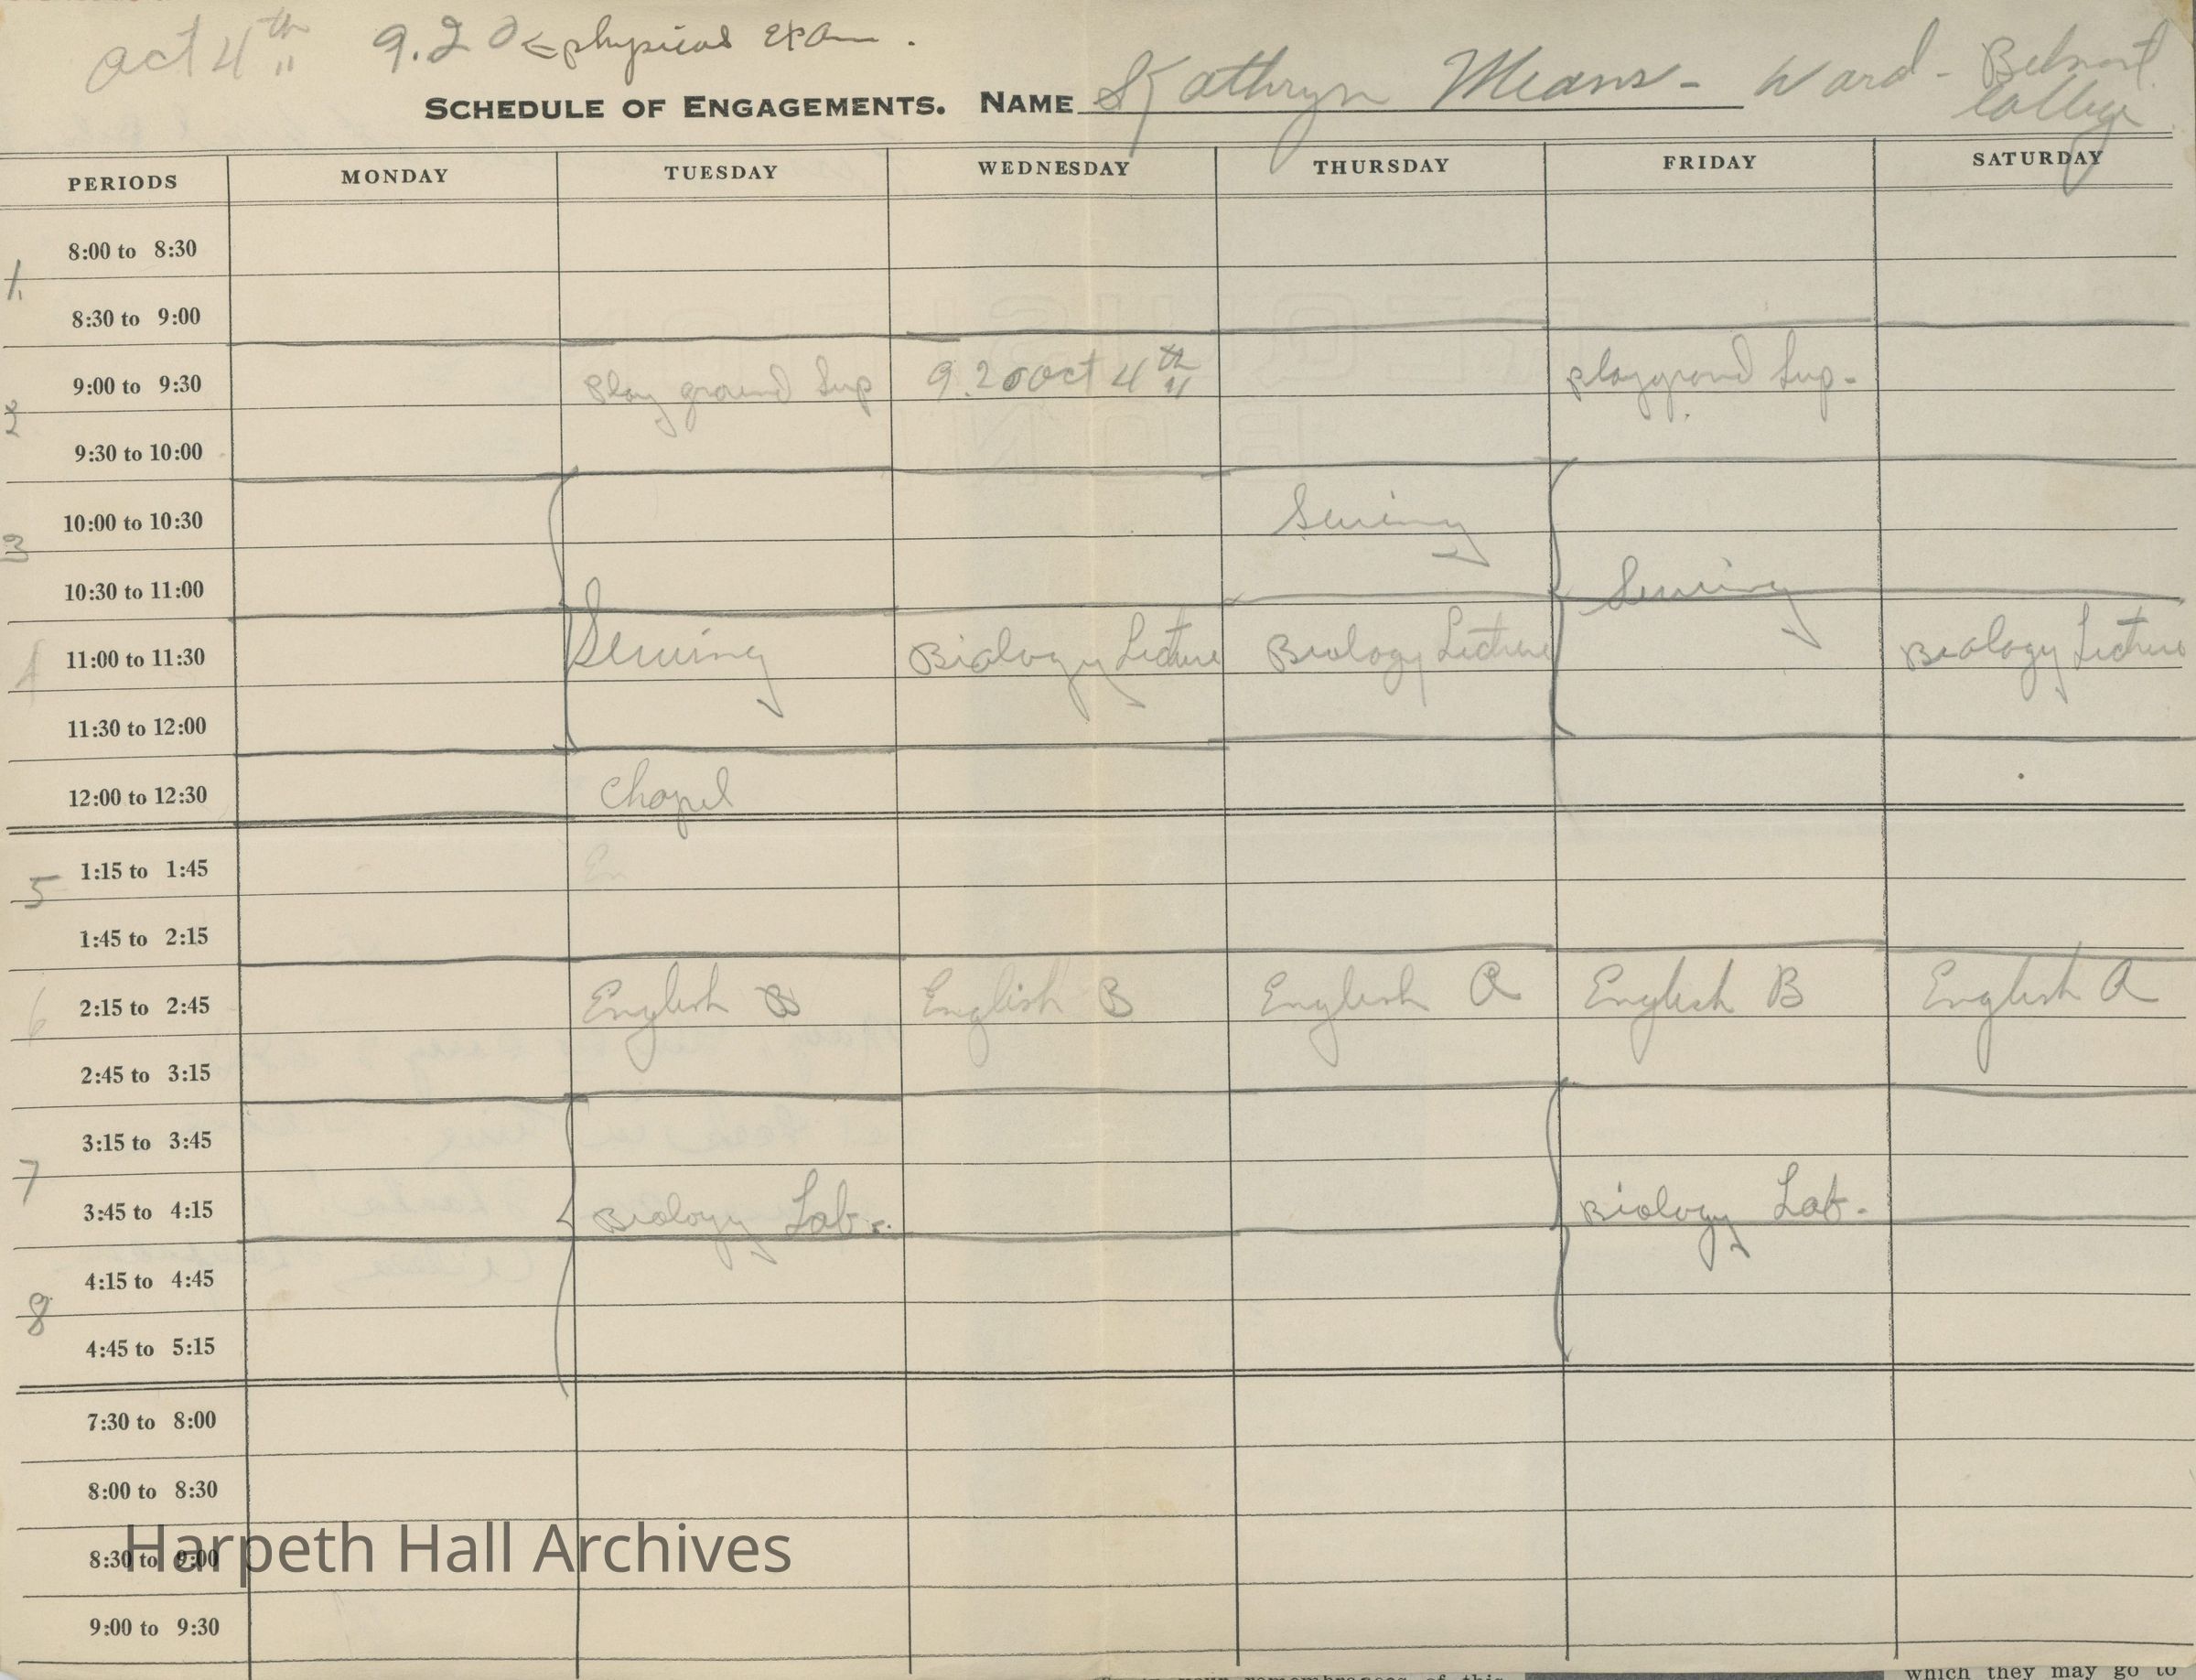 Oct 4th 9.20 physical Exam.
SCHEDULE OF ENGAGEMENTS. NAME Kathryn Means - Ward - Belmont College
PERIODS MONDAY TUESDAY WEDNESDAY THURSDAY FRIDAY SATURDAY
8:00 to 8:30
1.
8:30 to 9:00
9:00 to 9:30 Play ground Sup 9.20 Oct 4th playground Sup.
2
9:30 to 10:00
10:00 to 10:30 Sewing
3
10:30 to 11:00 Sewing
4 11:00 to 11:30 Sewing Biology Lecture Biology Lecture Biology Lecture
11:30 to 12:00
12:00 to 12:30 Chapel
1:15 to 1:45 En
5
1:45 to 2:15
6 2:15 to 2:45 English B English B English A English B English A
2:45 to 3:15
3:15 to 3:45
7
3:45 to 4:15 Biology Lab. Biology Lab.
4:15 to 4:45
8
4:45 to 5:15
7:30 to 8:00
8:00 to 8:30
Harpeth Hall Archives
8:30 to 9:00
9:00 to 9:30
which they may go to